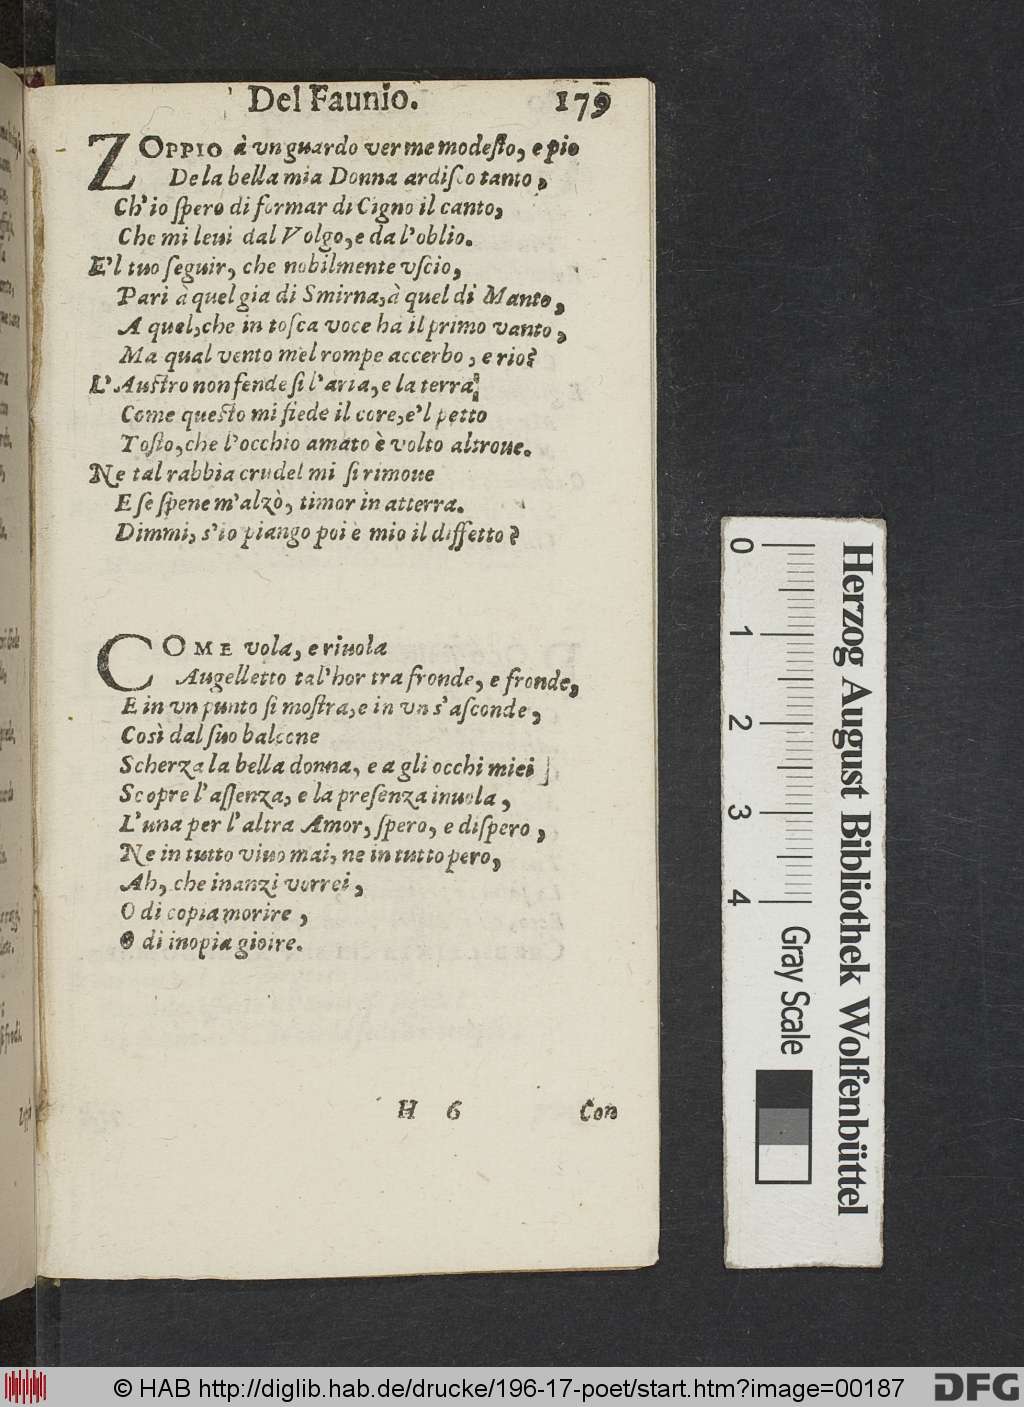 Del Faunio. 179
ZOPPIO à vn guardo ver me modeſto, e pio
De la bella mia Donna ardiſco tanto,
Ch'io ſpero di formar di Cigno il canto,
Che mi leui dal Volgo, e da l'oblio.
E'l tuo ſeguir, che nobilmente vſcio,
Pari à quel gia di Smirna, à quel di Manto,
A quel, che in toſca voce ha il primo vanto,
Ma qual vento mel rompe accerbo, e rio?
L'Auſtro non fende ſi l'aria, e la terra
Come queſto mi fiede il core, e'l petto
Toſto, che l'occhio amato è volto altroue.
Ne tal rabbia crudel mi ſi rimoue
E ſe ſpene m'alzò, timor in atterra.
Dimmi, s'io piango poi è mio il diffetto?
COME vola, e riuola
Augelletto tal'hor tra fronde, e fronde,
E in vn punto ſi moſtra, e in vn s'aſconde,
Così dal ſuo balcone
Scherza la bella donna, e a gli occhi miei
Scopre l'aſſenza, e la preſenza inuola,
L'una per l'altra Amor, ſpero, e diſpero,
Ne in tutto viuo mai, ne in tutto pero,
Ah, che inanzi vorrei,
O di copia morire,
O di inopia gioire.
H 6 Con
0 1 2 3 4 Gray Scale
Herzog August Bibliothek Wolfenbüttel
© HAB http://diglib.hab.de/drucke/196-17-poet/start.htm?image=00187 DFG